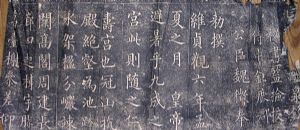 秘書監檢校
侍中鉅鹿郡
公臣魏徵奉
勑撰
維貞觀六年孟
夏之月 皇帝
避暑乎九成之
宮此則隨之仁
壽宮也冠山抗
殿絕壑為池跨
水架楹分巖竦
闕高閣周建長
廊四起棟宇膠
臺榭參差仰